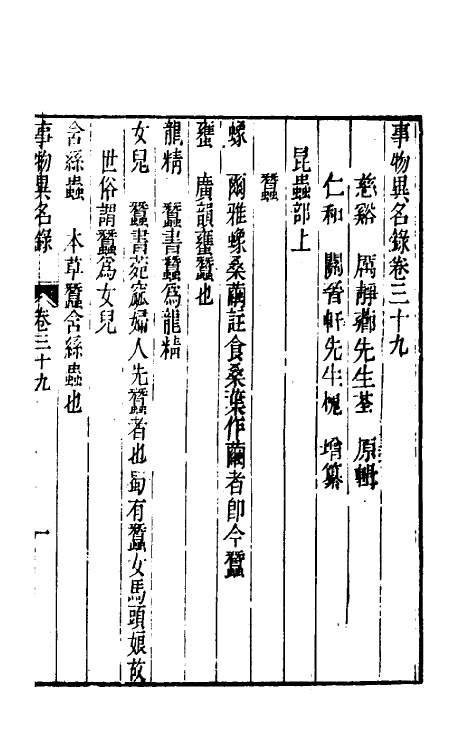 事物異名錄卷三十九
慈谿 厲靜薌先生荃 原輯
仁和 關晉軒先生槐 增纂
昆蟲部上
蠶
蟓 爾雅蟓桑繭註食桑葉作繭者卽今蠶
𧓉 廣韻𧓉蠶也
龍精 蠶書蠶爲龍精
女兒 蠶書苑窳婦人先蠶者也蜀有蠶女馬頭娘故
世俗謂蠶爲女兒
含絲蟲 本草蠶含絲蟲也
事物異名錄 卷三十九 一